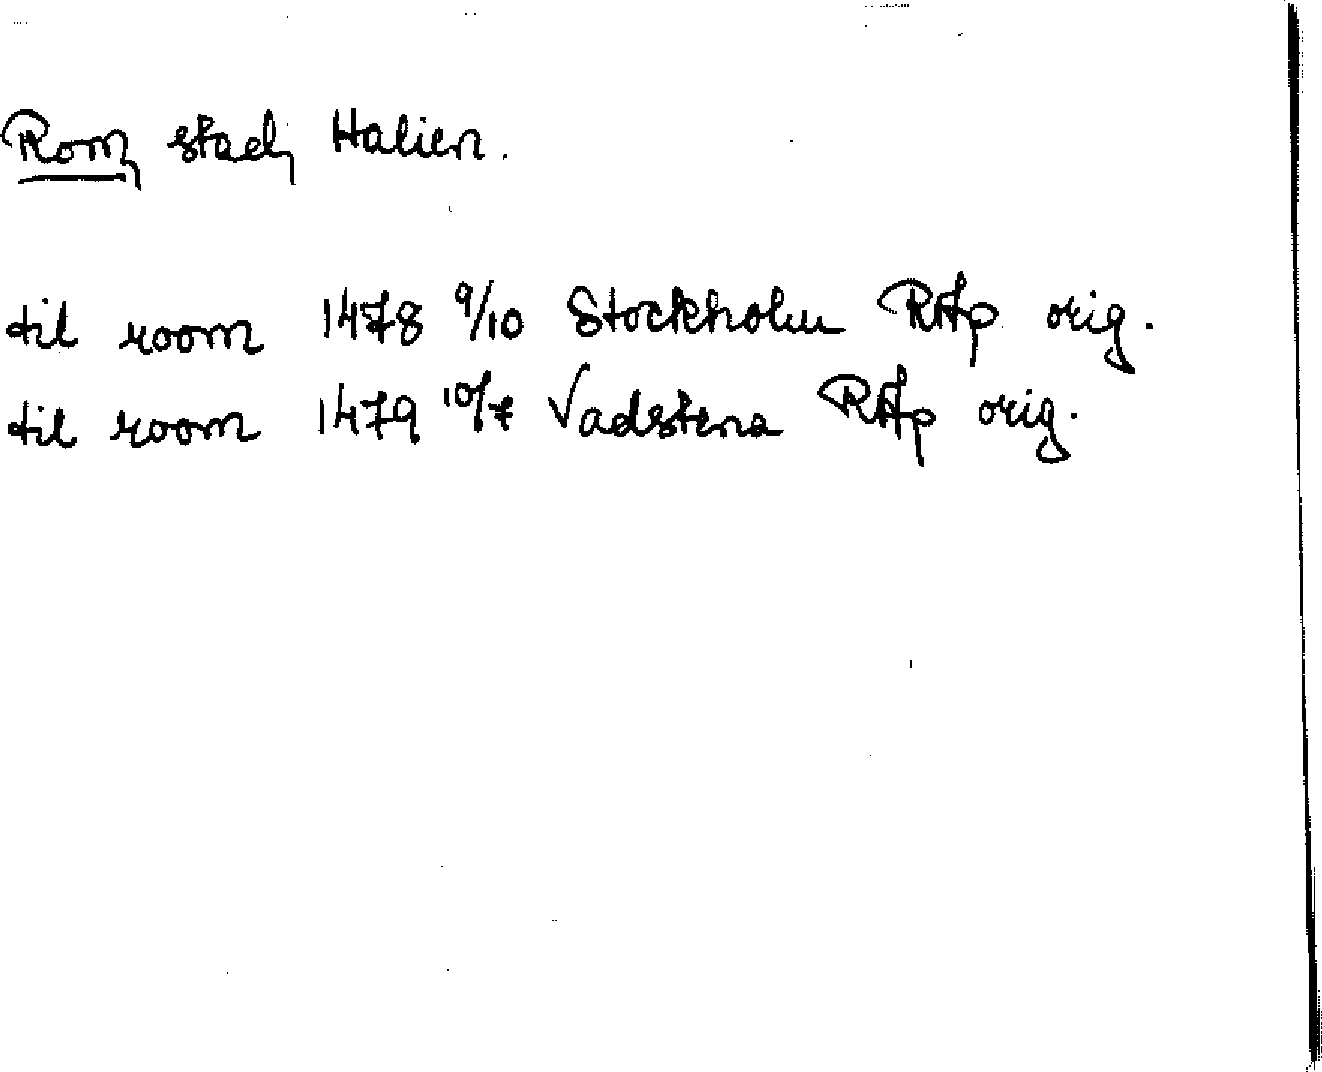 Rom, stad, Italien.
til room 1478 9/10 Stockholm RAp orig.
til room 1479 10/7 Vadstena RAp orig.